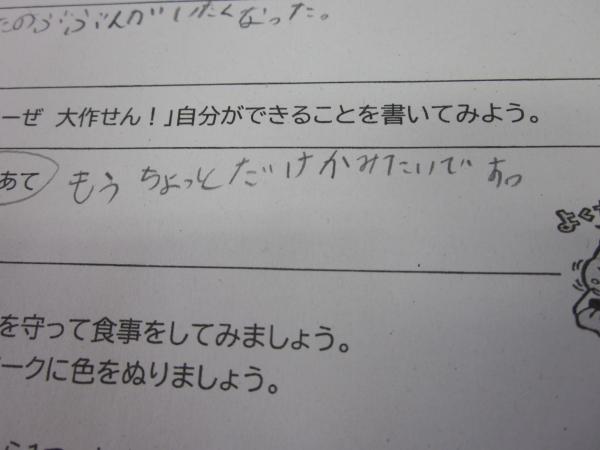 たのぶぶんがいたくなった。
ーぜ 大作せん！」自分ができることを書いてみよう。
あて もうちょっとだけかみたいです。
よく
を守って食事をしてみましょう。
ークに色をぬりましょう。